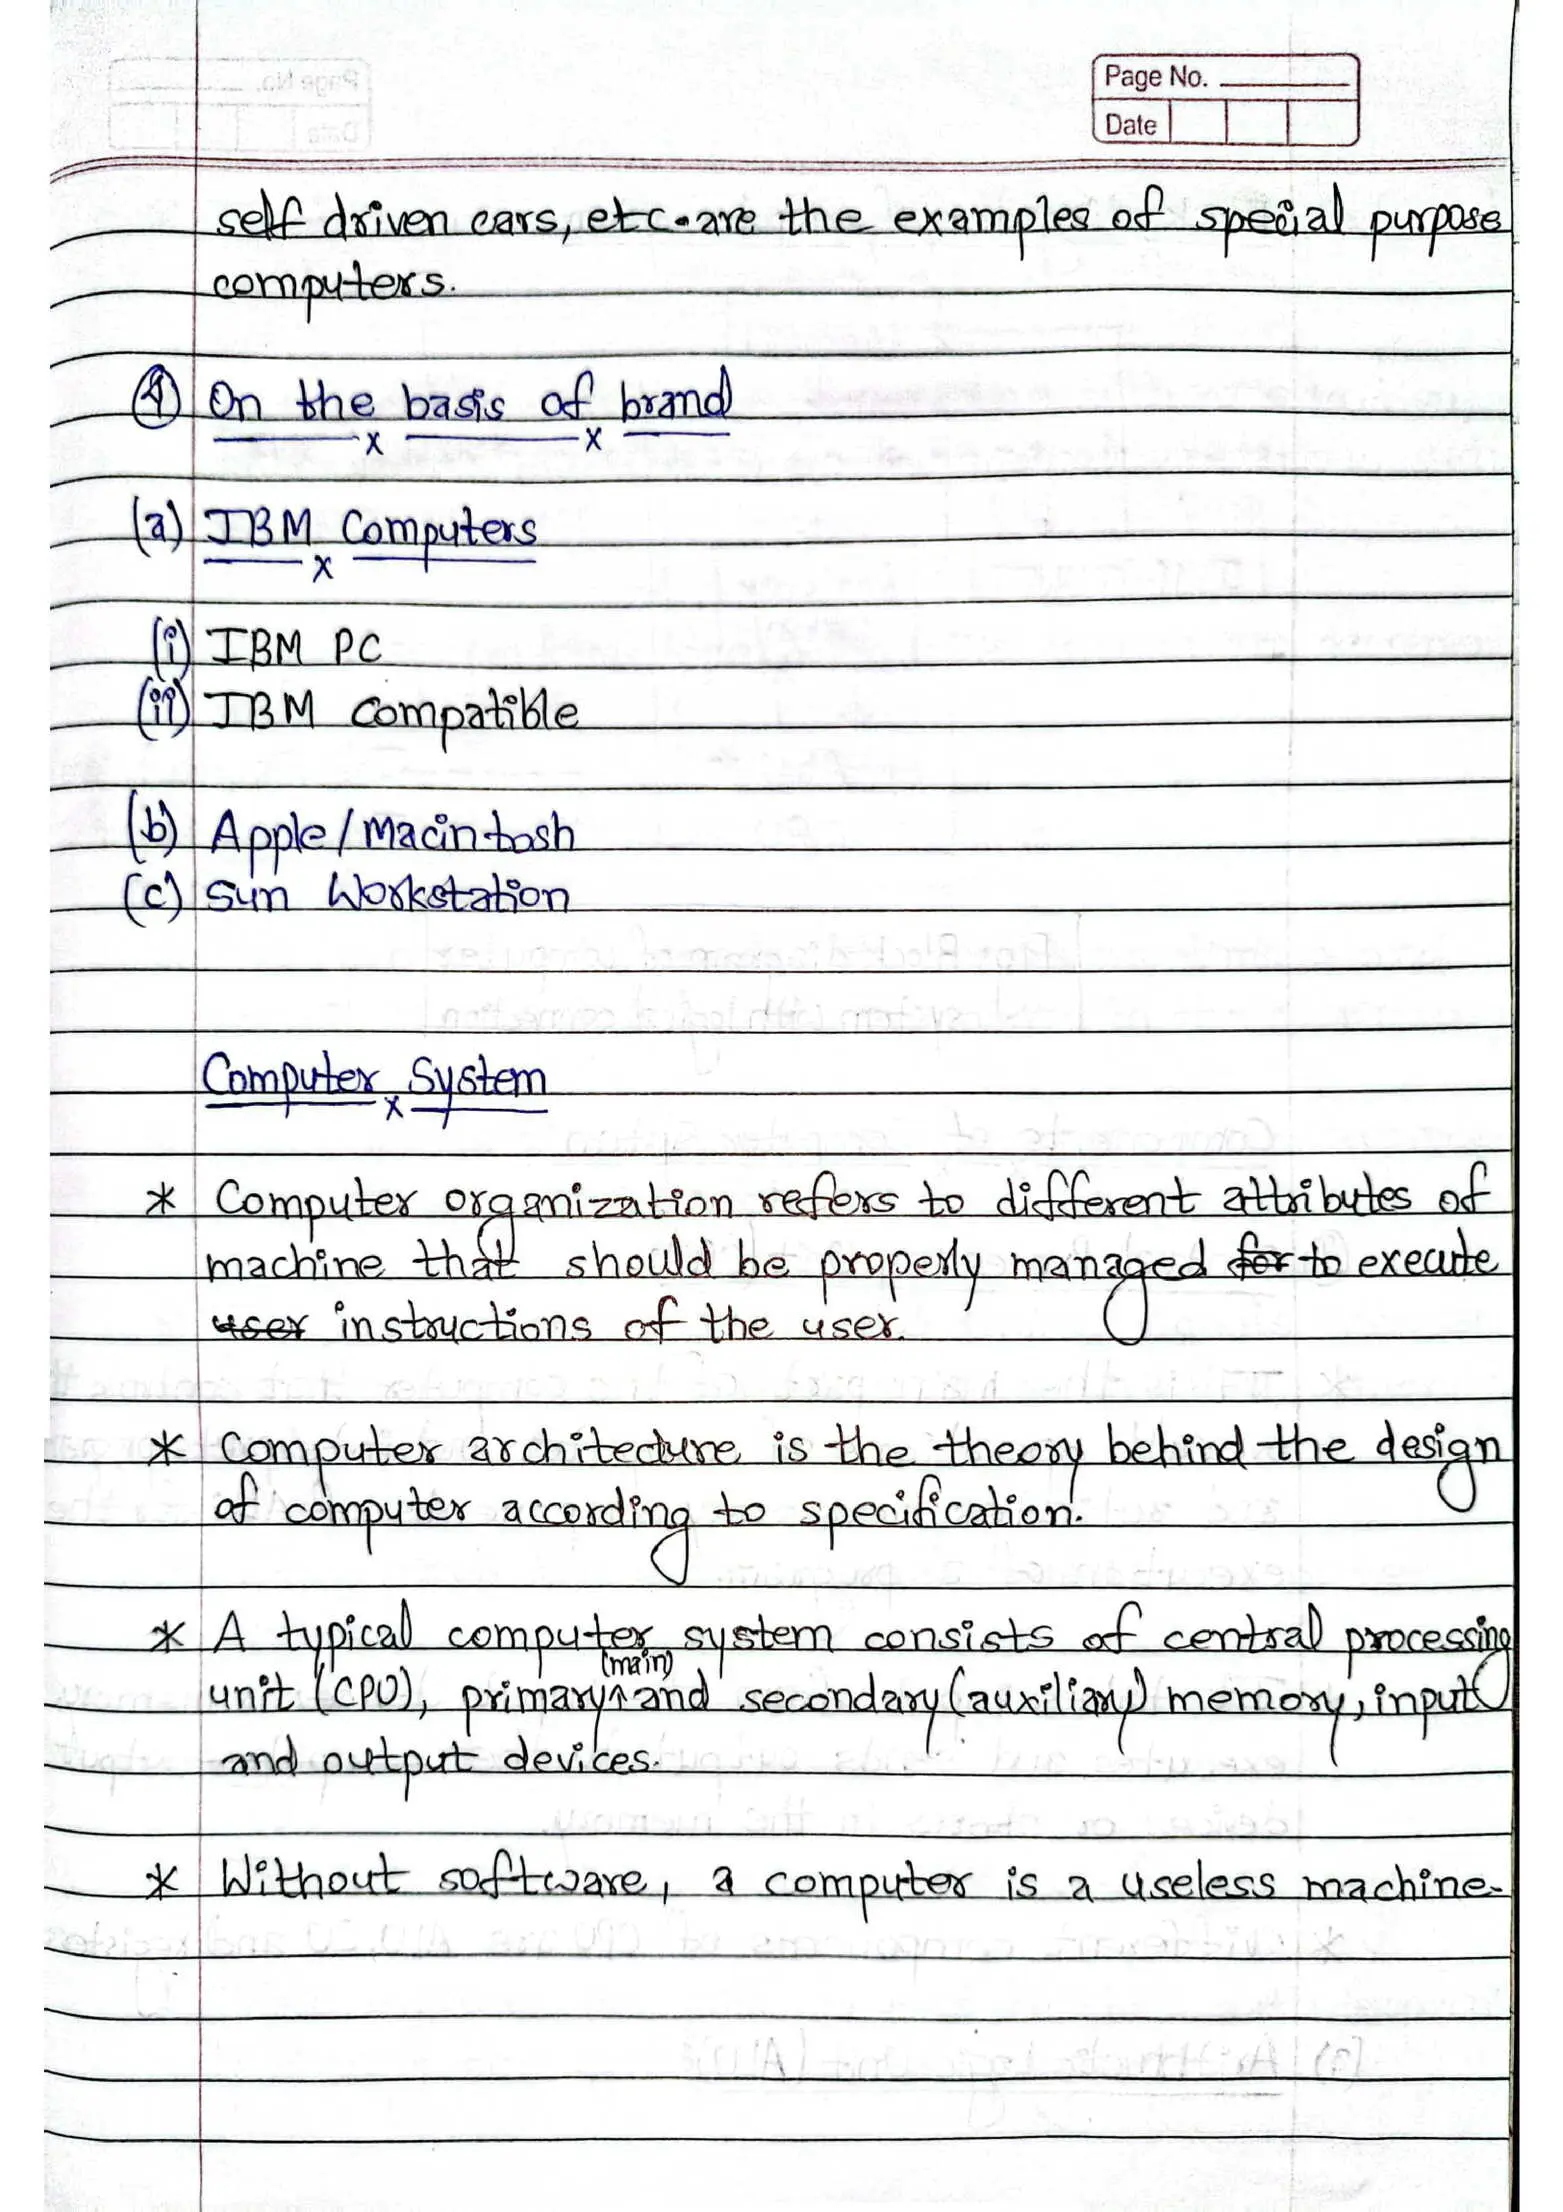 Page No.
Date
self driven cars, etc. are the examples of special purpose
computers.
④ On the basis of brand
(a) IBM Computers
(i) IBM PC
(ii) IBM compatible
(b) Apple/Macintosh
(c) Sun Workstation
Computer System
* Computer organization refers to different attributes of
machine that should be properly managed for to execute
user instructions of the user.
* Computer architecture is the theory behind the design
of computer according to specification.
* A typical computer system consists of central processing
unit (CPU), primary (main) and secondary (auxiliary) memory, input
and output devices.
* Without software, a computer is a useless machine.